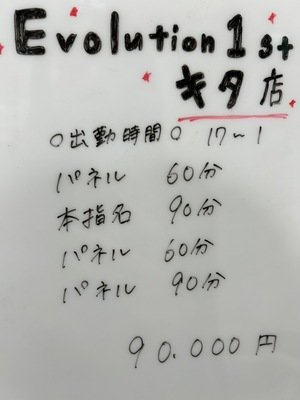 Evolution 1st
キタ店
○出勤時間○ 17~1
パネル 60分
本指名 90分
パネル 60分
パネル 90分
90.000円